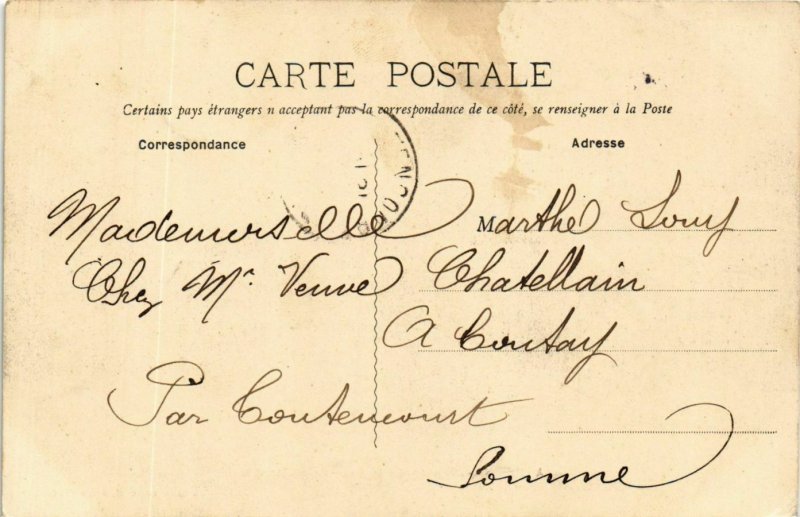 CARTE POSTALE
Certains pays étrangers n acceptant pas la correspondance de ce côté, se renseigner à la Poste
Correspondance Adresse
Mademoiselle Marthe Louy
Chez Mr Veuve Chatellain
A Contay
Par Contencourt
Somme